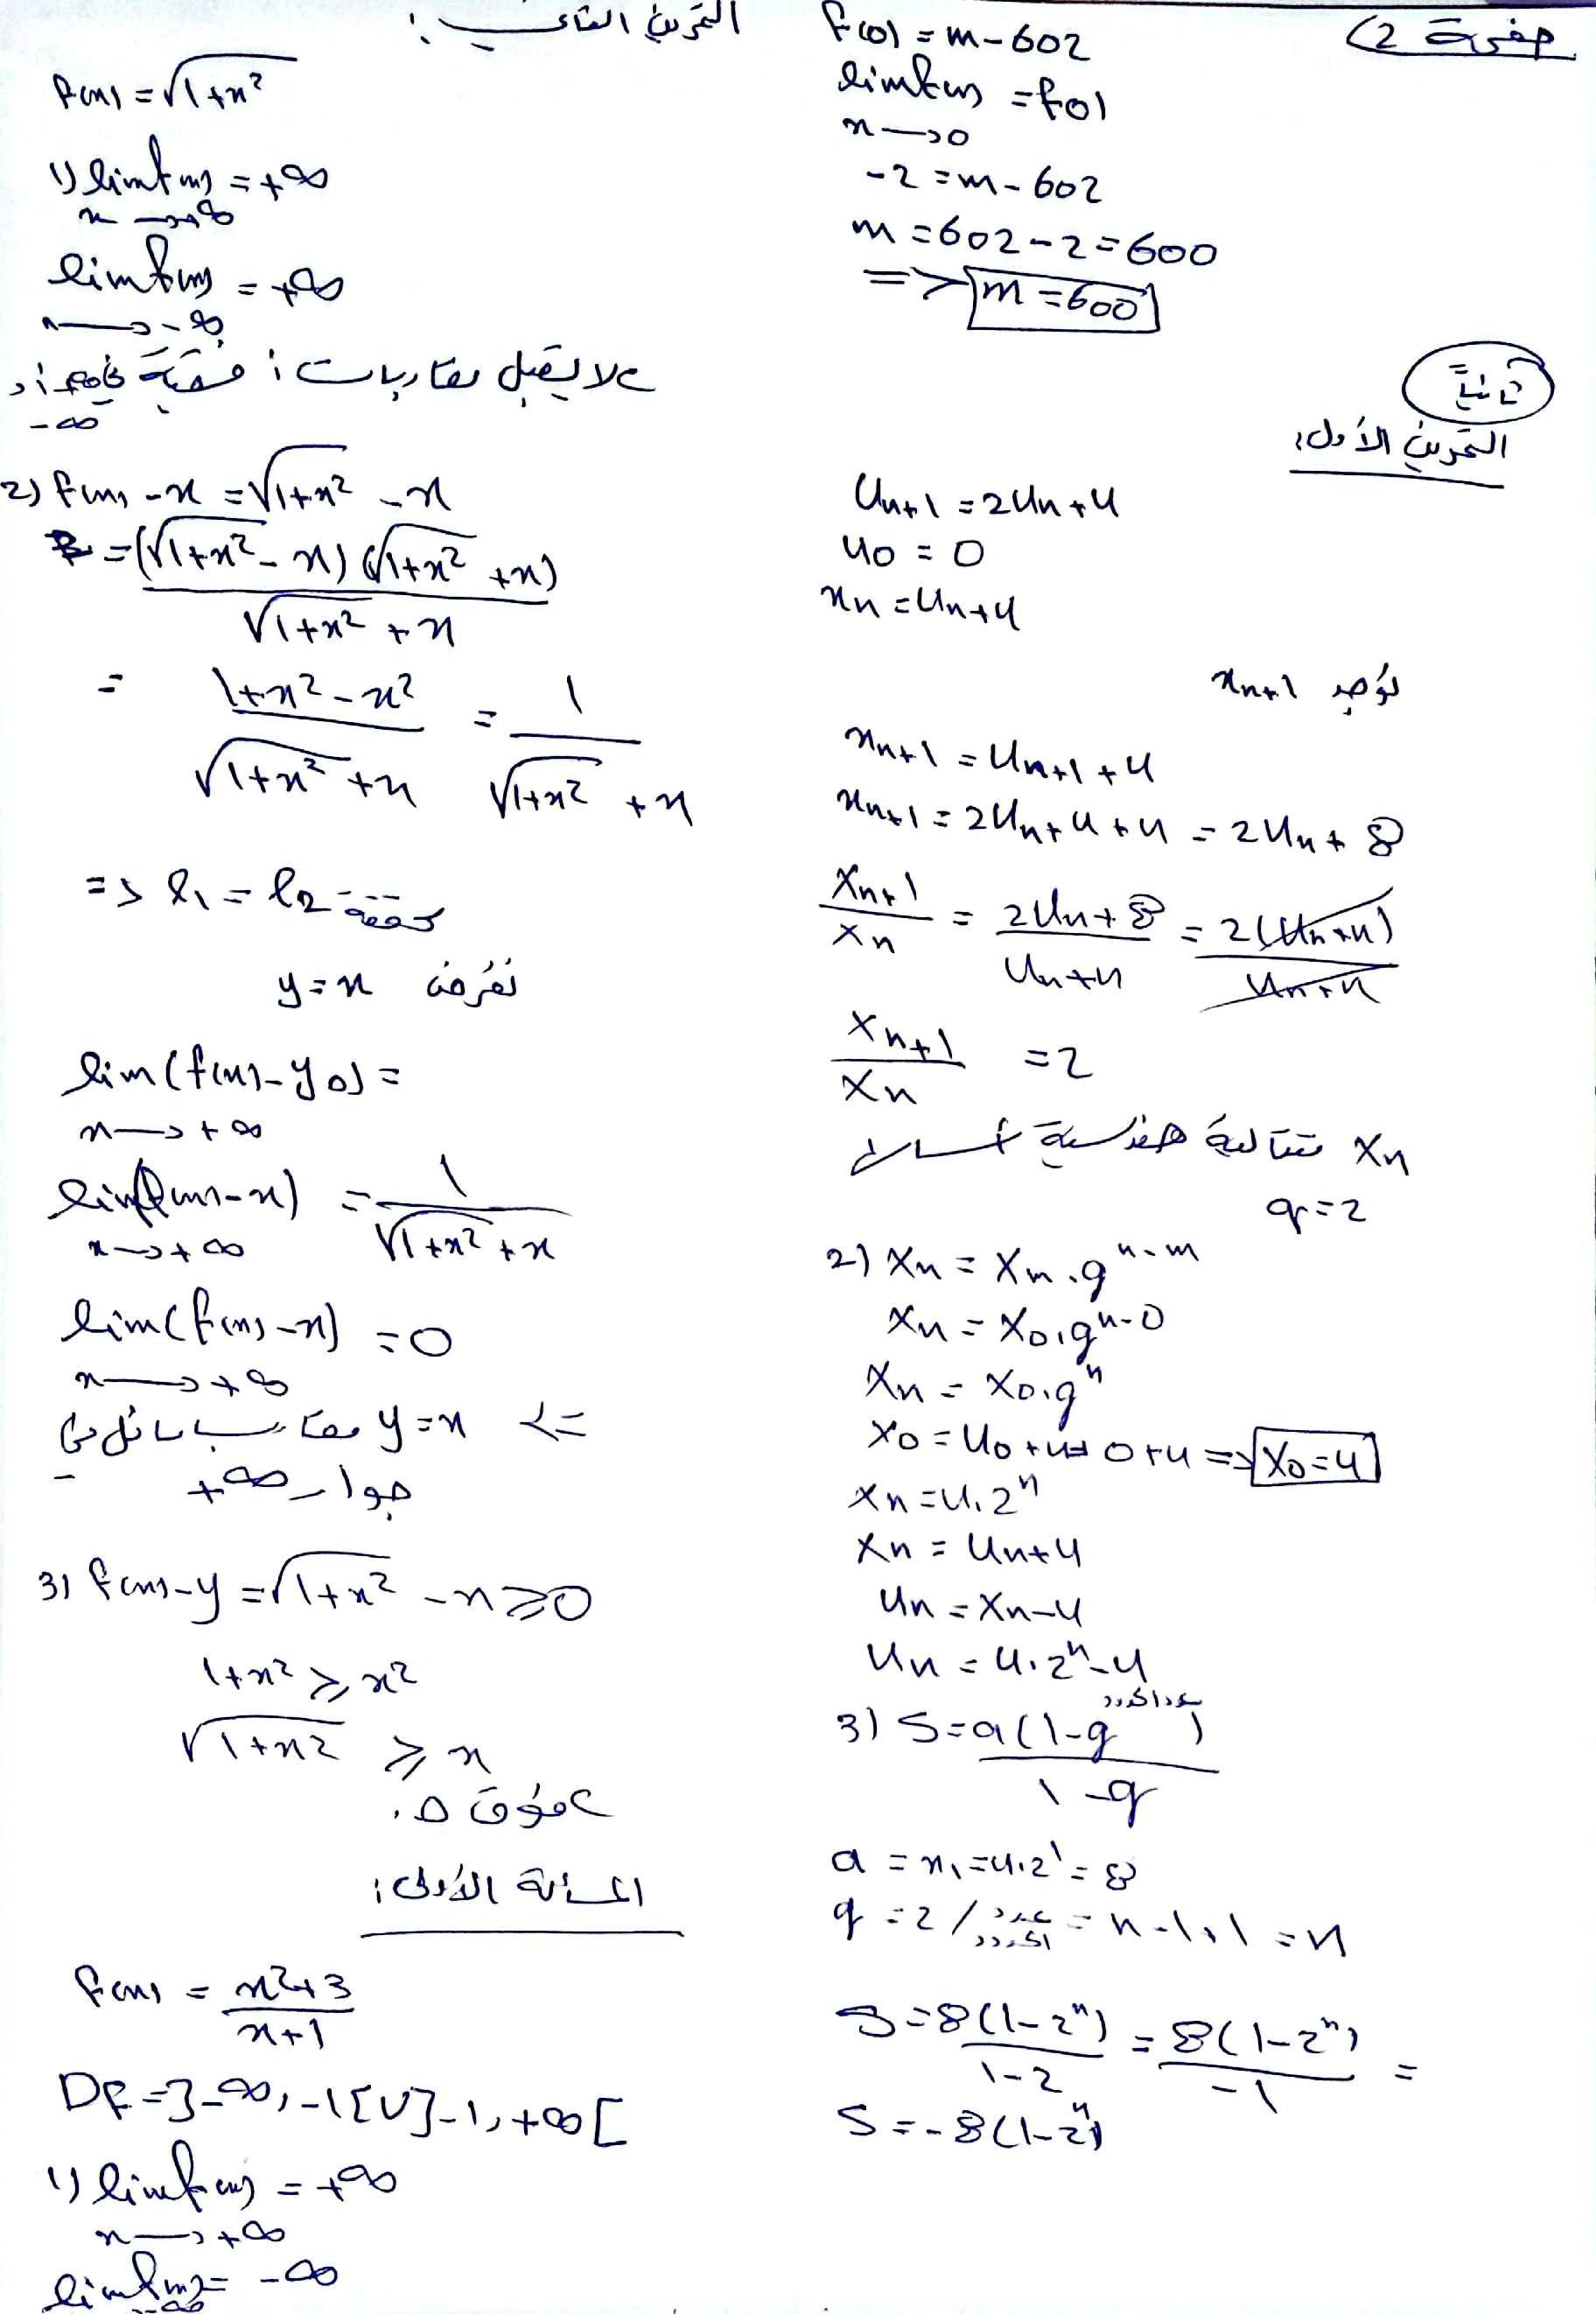 صفحة 2)
f(0) = m-602
lim f(x) = f(0)
x→0
-2 = m-602
m = 602-2 = 600
=> m = 600
ثانياً
التمرين الأول:
Un+1 = 2Un+4
U0 = 0
xn = Un+4
نوجد xn+1
xn+1 = Un+1 + 4
xn+1 = 2Un+4+4 = 2Un+8
Xn+1/Xn = (2Un+8)/(Un+4) = 2(Un+4)/(Un+4)
Xn+1/Xn = 2
Xn متتالية هندسية أساسها
q=2
2) Xn = Xm.q^(n-m)
Xn = X0.q^(n-0)
Xn = X0.q^n
X0 = U0+4 = 0+4 => X0=4
Xn = 4.2^n
Xn = Un+4
Un = Xn-4
Un = 4.2^n-4
3) S = a(1-q^عدد الحدود)/(1-q)
a = x1 = 4.2^1 = 8
q = 2 / عدد الحدود = n-1+1 = n
S = 8(1-2^n)/(1-2) = 8(1-2^n)/-1 =
S = -8(1-2^n)
التمرين الثاني:
f(x) = √(1+x²)
1) lim f(x) = +∞
x→+∞
lim f(x) = +∞
x→-∞
لا يقبل مقاربات أفقية
-∞
2) f(x)-x = √(1+x²) -x
= (√(1+x²)-x)(√(1+x²)+x)/(√(1+x²)+x)
= (1+x²-x²)/(√(1+x²)+x) = 1/(√(1+x²)+x)
=> l1 = l2 محققة
نفرض y=x
lim(f(x)-y0) =
x→+∞
lim(f(x)-x) = 1/(√(1+x²)+x)
x→+∞
lim(f(x)-x) = 0
x→+∞
=> y=x مقارب مائل في
جوار +∞
3) f(x)-y = √(1+x²) -x ≥ 0
1+x² ≥ x²
√(1+x²) ≥ x
فوق
المسألة الأولى:
f(x) = (x²+3)/(x+1)
Df = ]-∞, -1[ U ]-1, +∞[
1) lim f(x) = +∞
x→+∞
lim f(x) = -∞
-∞